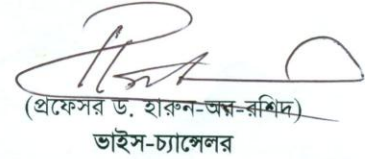 (প্রফেসর ড. হারুন-অর-রশিদ)
ভাইস-চ্যান্সেলর